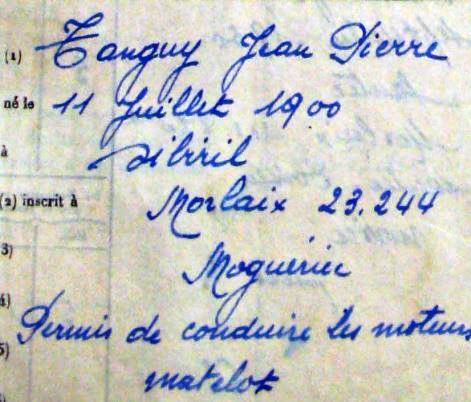 (1) Tanguy Jean Pierre
né le 11 Juillet 1900
à Sibiril
(2) inscrit à Morlaix 23.244
3) Moguériec
4) Permis de conduire les moteurs
5) matelot